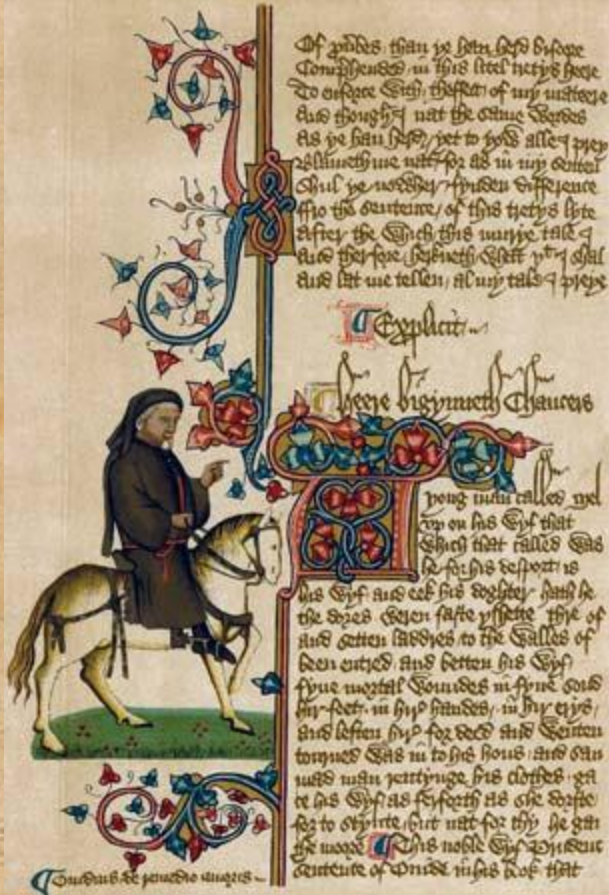 Of than ye han herd bifore
Comprehended in this litel tretys heere
To enforce with theffect of my mateere
And though I nat the same wordes
As ye han herd / yet to yow alle I prey
Blameth me nat / for as in my senten
Shul ye nowher / fynden difference
ffro the sentence / of this tretys lyte
After the which this murye tale I
And therfore herkneth what þt I shal
And lat me tellen / al my tale I preye
Explicit
Heere bigynneth Chaucers
A yong man called Mel
vp on his wyf that
which that called was
he for his desport is
his wyf and eek his doghter hath he
the dores weren faste yshette thre of
and setten laddres to the walles of
been entred and betten his wyf
fyue mortal woundes in fyue
hir feet in hir handes in hir erys
and leften hir for deed and wenten
tourned was in to his hous and sau
mad man rentynge his clothes ga
his wyf as ferforth as she dorste
for to stynte but nat for thy he gan
the moore This noble wyf Prudenc
sentence of Ouide in his book that
Ouidius de remedio amoris